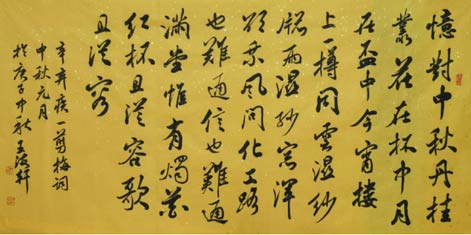 憶對中秋丹桂
叢花在杯中月
在盃中今宵樓
上一樽同雲濕紗
窗雨濕紗窗渾
欲乘風問化工路
也難通信也難通
滿堂惟有燭花
紅杯且從容歌
且從容
辛弃疾一剪梅词
中秋元月
於庚子中秋王軒